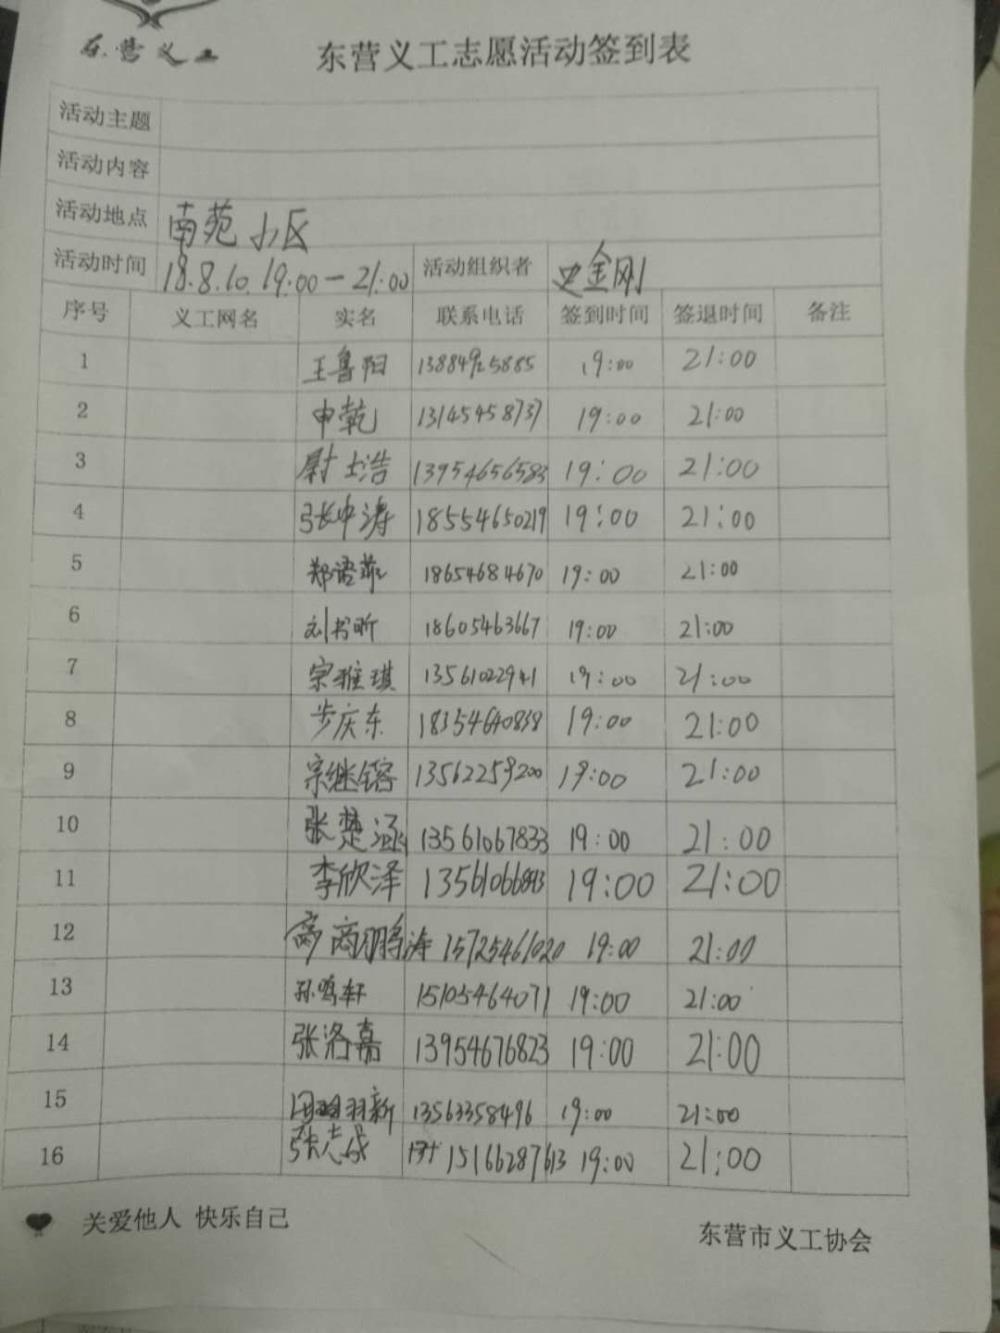 东营义工
东营义工志愿活动签到表
活动主题
活动内容
活动地点 南苑小区
活动时间 18.8.10. 19:00-21:00 活动组织者 史金刚
序号 义工网名 实名 联系电话 签到时间 签退时间 备注
1 王鲁阳 13884925885 19:00 21:00
2 申乾 13145458737 19:00 21:00
3 尉士浩 13954656583 19:00 21:00
4 张中涛 18554650219 19:00 21:00
5 郑语菲 18654684670 19:00 21:00
6 刘书昕 18605463667 19:00 21:00
7 宗雅琪 13561022941 19:00 21:00
8 步庆东 18354640838 19:00 21:00
9 宗继镕 13562259200 19:00 21:00
10 张楚涵 13561067833 19:00 21:00
11 李欣泽 19:00 21:00
12 商鹏涛 15725461020 19:00 21:00
13 孙鸣轩 15105464071 19:00 21:00
14 张洛嘉 13954676823 19:00 21:00
15 13563358496 19:00 21:00
16 张志成 15166287613 19:00 21:00
关爱他人 快乐自己
东营市义工协会